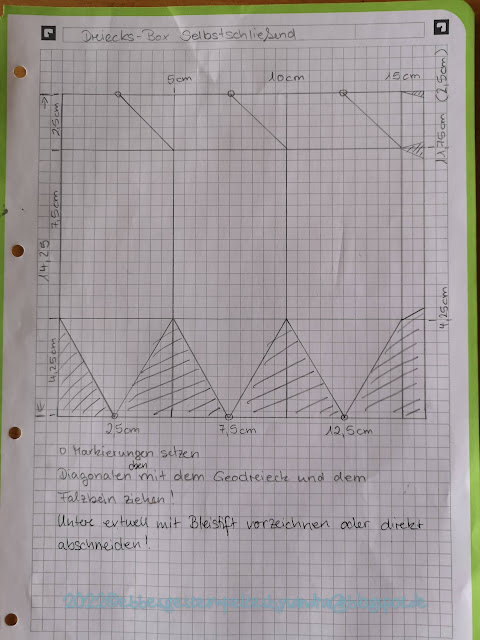 Dreiecks-Box Selbstschließend
5cm 10cm 15cm
(2,5cm)
11,75cm
2,5cm
7,5cm
14,25
4,25cm
4,25cm
2,5cm 7,5cm 12,5cm
o Markierungen setzen
oben
Diagonalen mit dem Geodreieck und dem
Falzbein ziehen!
Untere evtuell mit Bleistift vorzeichnen oder direkt
abschneiden!